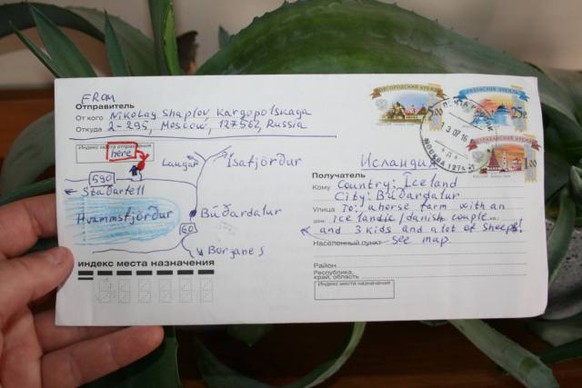 FROM
Отправитель
От кого Nikolay Shaplov Kargopolskaya
Откуда 2-295, Moscow, 127562, Russia
Индекс места отправления
here
590
Laugar
Ísafjörður
Staðarfell
Hvammsfjörður
Búðardalur
60
Borganes
индекс места назначения
2.00
25р
1.00
РОССИЯ
МОСКВА
Исландия
Получатель
Кому Country: Iceland
City: Búðardalur
Улица To: a horse farm with an
дом Icelandic/danish couple
and 3 kids and a lot of sheeps!
Населенный пункт See map.
Район
Республика,
край, область
Индекс места назначения